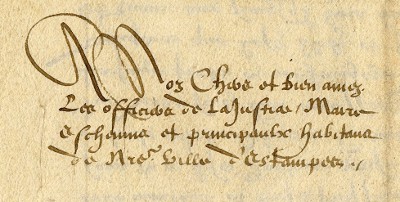 Nos Chers et bien amez
Les officiers de la Justice, Maire
Eschevins et principaulx habitans
de Nre Ville d'Estampes